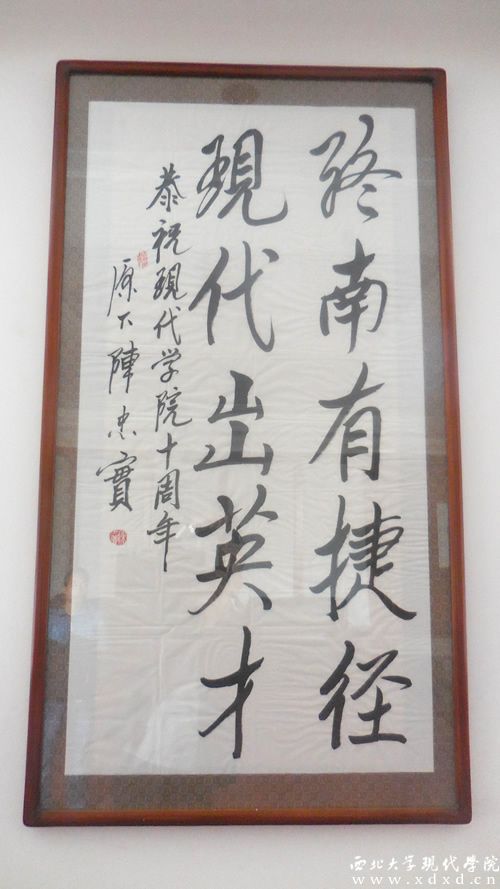 终南有捷径
现代出英才
恭祝现代学院十周年
原下陳忠實
西北大学现代学院
www.xdxd.cn